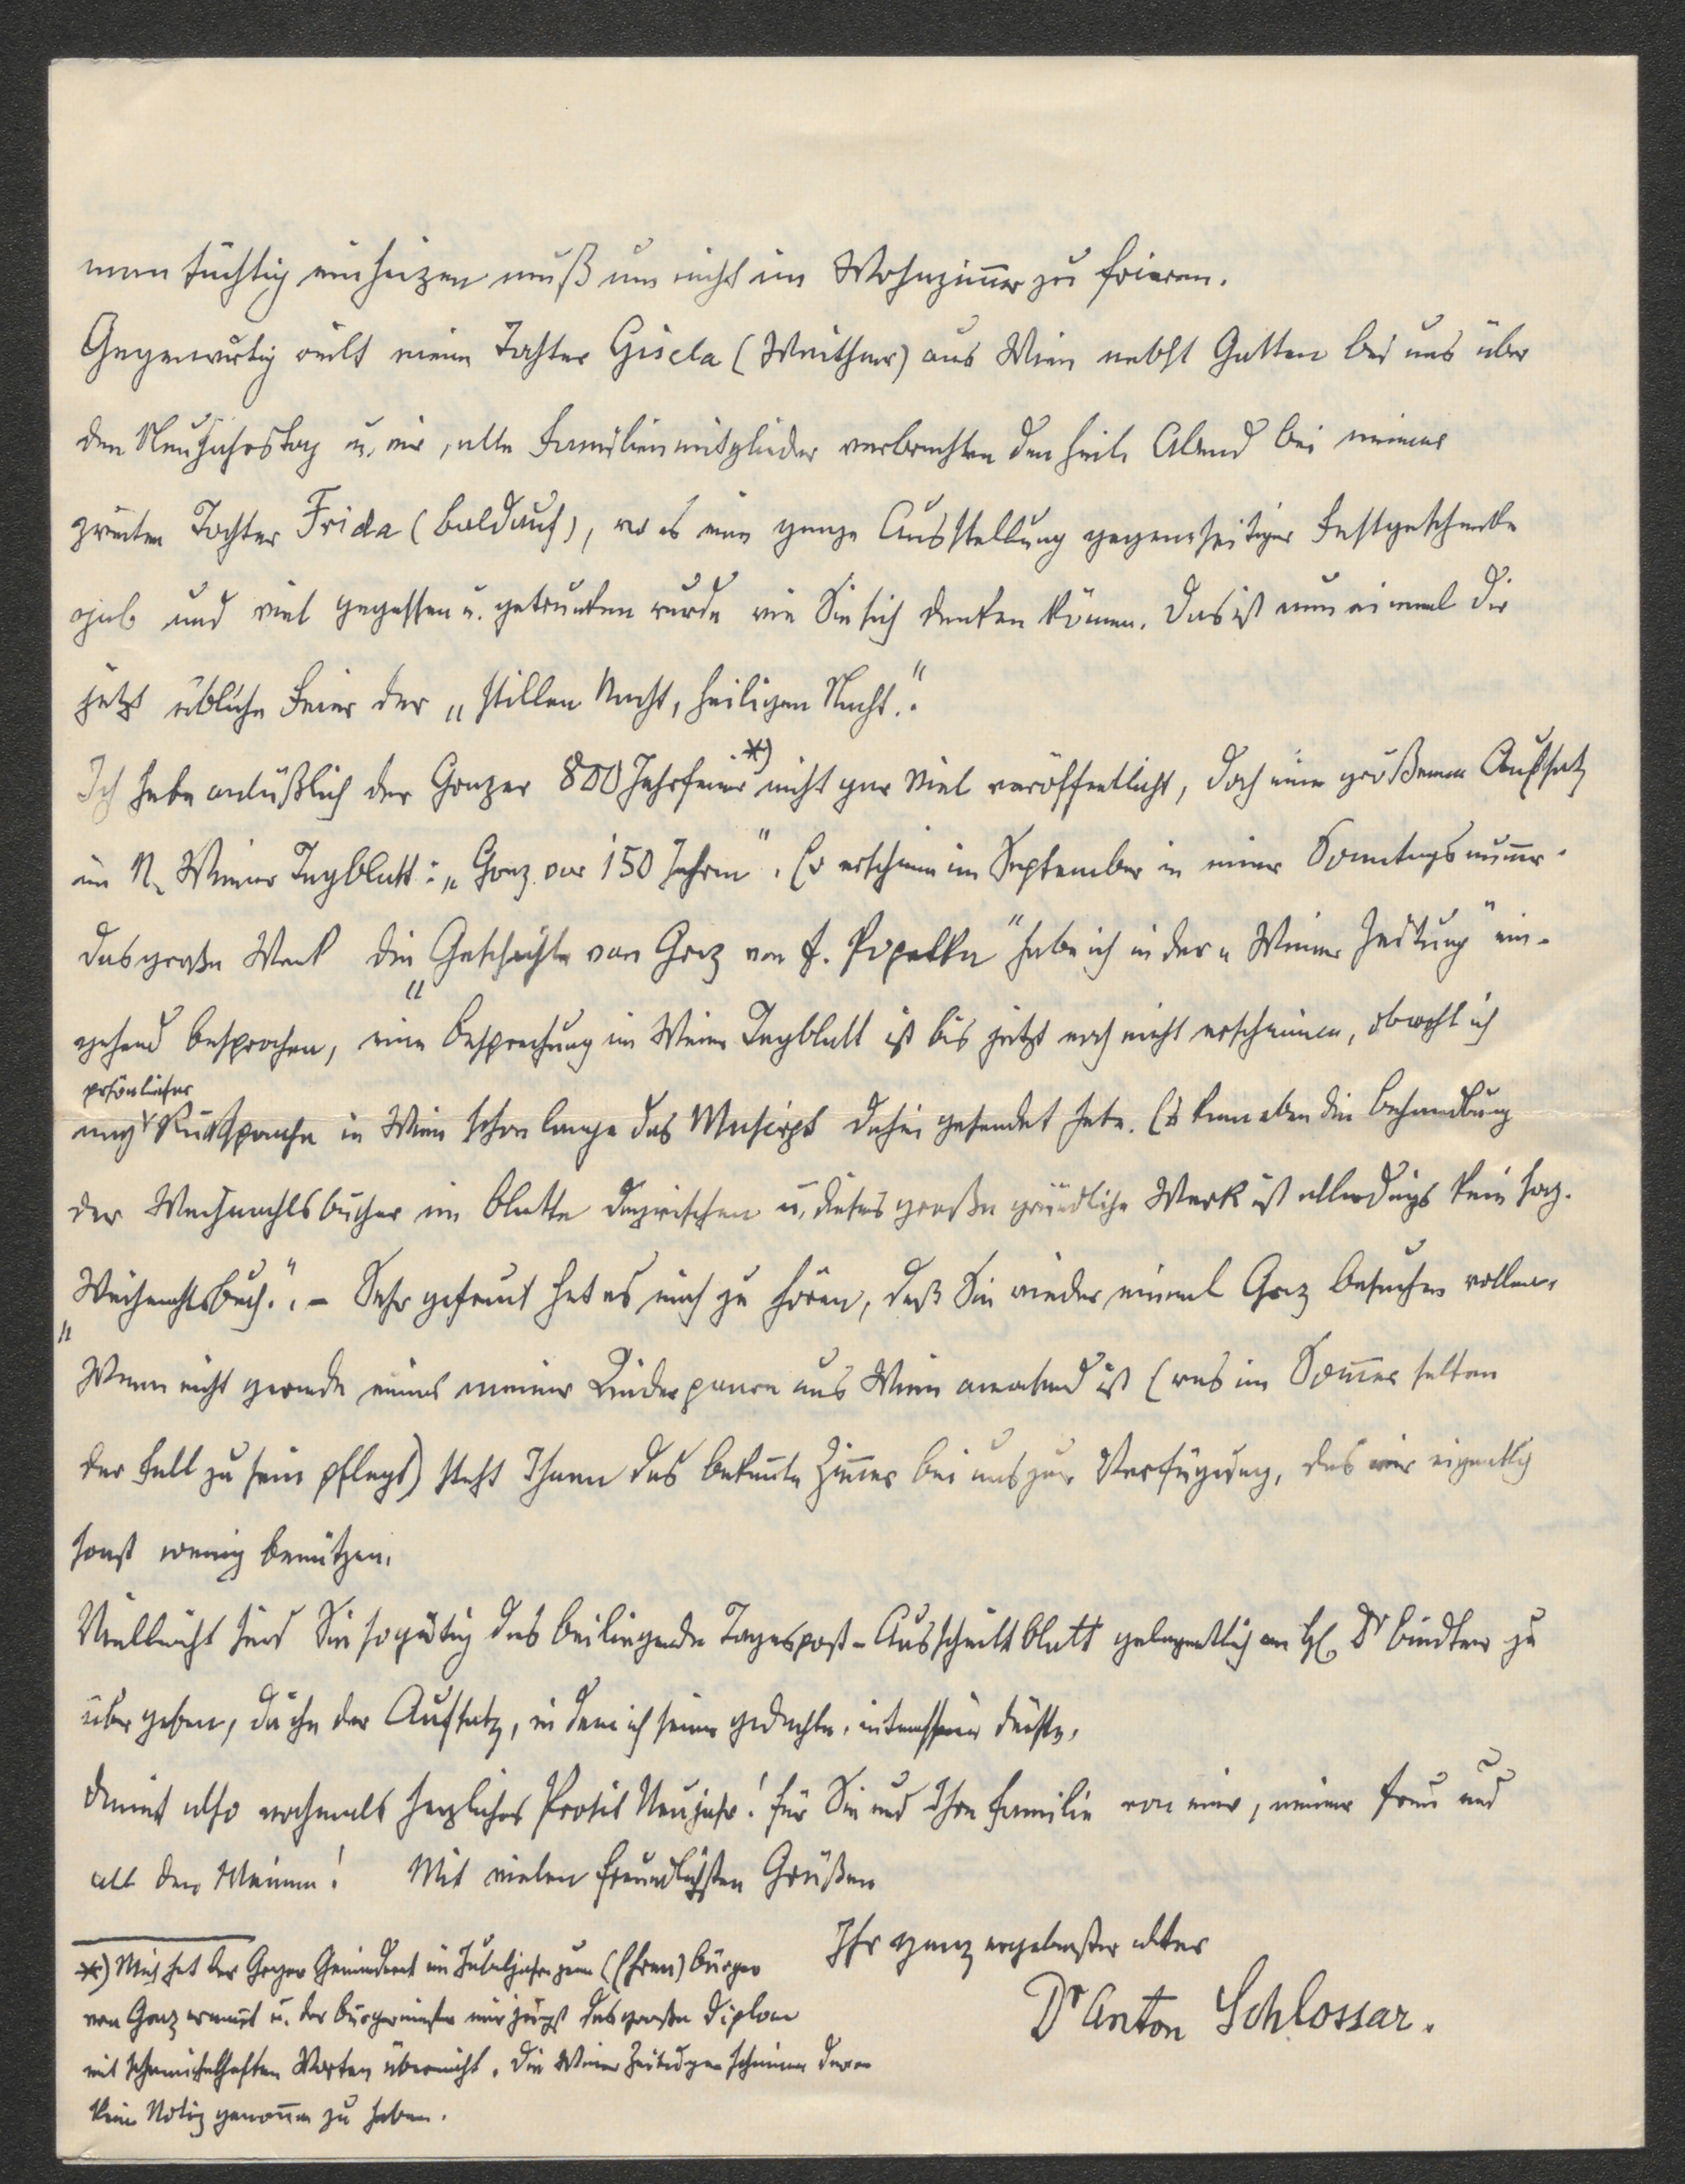 man tüchtig einheizen muß um nicht im Wohnzim̄er zu frieren.
Gegenwärtig weilt meine Tochter Gisela (Weithner) aus Wien nebst Gatten bei uns über
den Neujahrstag u. wir, alle Familienmitglieder verbrachten den heil. Abend bei meiner
zweiten Tochter Frida (Baldauf), wo es eine ganze Ausstellung gegenseitiger Festgeschenke
gab und viel gegessen u. getrunken wurde wie Sie sich denken können. Das ist nun einmal die
jetzt übliche Feier der „stillen Nacht, heiligen Nacht“.
Ich habe anläßlich der Grazer 800 Jahrfeier *) nicht gar viel veröffentlicht, doch einen größeren Aufsatz
im N. Wiener Tagblatt: „Graz vor 150 Jahren“. Er erschien im September in einer Sonntagsnum̄er.
Das große Werk die „Geschichte von Graz von F. Popelka“ habe ich in der „Wiener Zeitung“ ein-
gehend besprochen, eine Besprechung im Wiener Tagblatt ist bis jetzt noch nicht erschienen, obwohl ich
nach persönlicher Rücksprache in Wien schon lange das Mscript dahin gesendet habe. Es kam eben die Behandlung
der Weihnachtsbücher im Blatte dazwischen u. dieses große gründliche Werk ist allerdings kein sog.
„Weihnachtsbuch“. – Sehr gefreut hat es mich zu hören, daß Sie wieder einmal Graz besuchen wollen.
Wenn nicht gerade eines meiner Kinderpaare aus Wien anwesend ist (was im Som̄er selten
der Fall zu sein pflegt) steht Ihnen das bekan̄te Zim̄er bei uns zur Verfügung, das wir eigentlich
sonst wenig benützen.
Vielleicht sind Sie so gütig das beiliegende Tagespost-Ausschnittblatt gelegentlich an H. Dr Bindtner zu
übergeben, da ihn der Aufsatz, in dem ich seiner gedachte, interessieren dürfte.
Damit also nochmals herzliches Prosit Neujahr! für Sie und Ihre Familie von mir, meiner Frau und
all den Meinen! Mit vielen freundlichsten Grüßen
Ihr ganz ergebenster alter
Dr Anton Schlossar.
*) Mich hat der Grazer Gemeinderat im Jubeljahre zum (Ehren) Bürger
von Graz ernan̄t u. der Bürgermeister mir jüngst das große Diplom
mit schmeichelhaften Worten überreicht. Die Wiener Zeitungen scheinen davon
keine Notiz genom̄en zu haben.